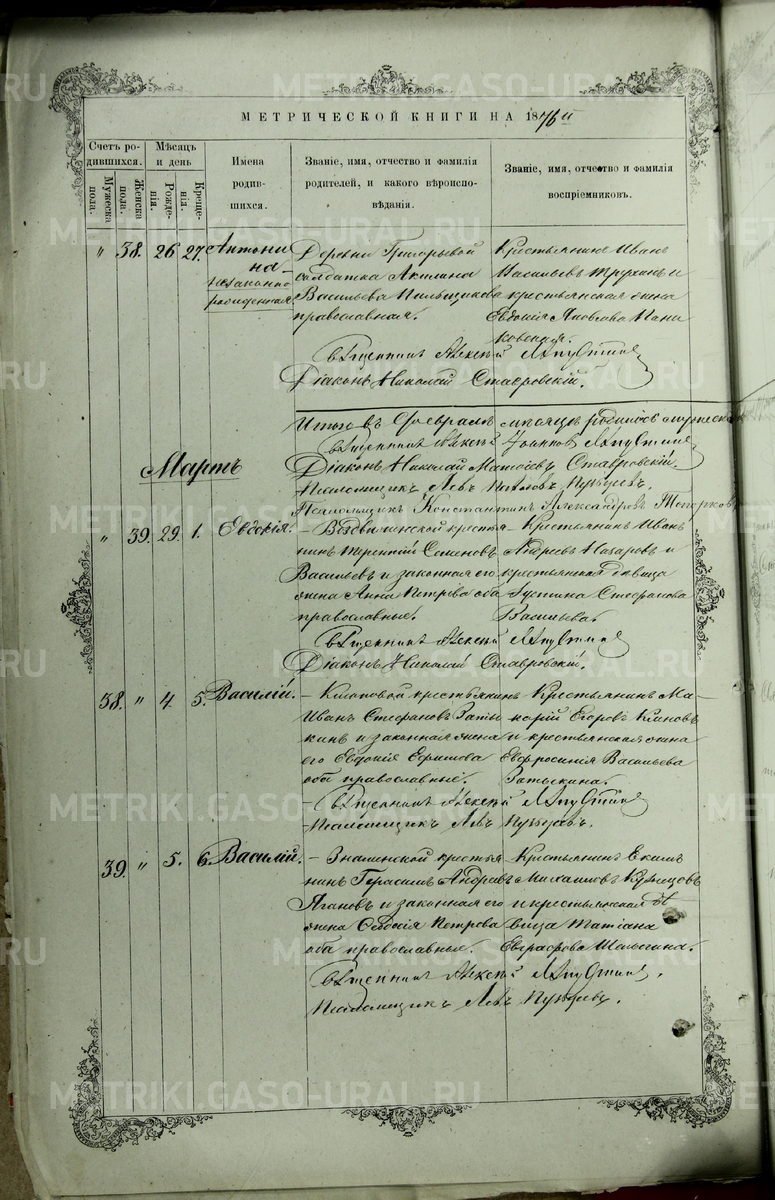 МЕТРИЧЕСКОЙ КНИГИ НА 1876 й
Счетъ родившихся.
Мужеска пола.
Женска пола.
Мѣсяцъ и день
Рожденія.
Крещенія.
Имена родившихся.
Званіе, имя, отчество и фамилія родителей, и какого вѣроисповѣданія.
Званіе, имя, отчество и фамилія воспріемниковъ.
" 38. 26 27. Антонина незаконно рожденная.
Деревни Григорьевой
солдатка Акилина
Васильева
православная.
Крестьянинъ Иванъ
Васильевъ и
крестьянская жена
Евдокія Яковлева
Священникъ Алексѣй
Діаконъ Николай Ставровскій.
Итого въ Февралѣ мѣсяцѣ родилось мужеска
Священникъ Алексѣй Іоанновъ
Діаконъ Николай Матѳіевъ Ставровскій.
Псаломщикъ Левъ
Псаломщикъ Константинъ Александровъ Топорковъ
Мартъ
" 39. 29. 1. Евдокія.
крестья-
нинъ Терентій Семеновъ
Васильевъ и законная его
жена Анна Петрова оба
православные.
Крестьянинъ Иванъ
Андреевъ Назаровъ и
крестьянская дѣвица
Устина Стефанова
Васильева.
Священникъ Алексѣй
Діаконъ Николай Ставровскій.
38. " 4. 5. Василій.
крестьянинъ
Иванъ Стефановъ Заты-
кинъ и законная жена
его Евдокія Ефимова
оба православные.
Крестьянинъ Ма-
карій Егоровъ
и крестьянская жена
Евфросинія Васильева
Затыкина.
Священникъ Алексѣй
Псаломщикъ Левъ
39. " 5. 6. Василій.
Знаменской крестья-
нинъ Герасимъ Андреевъ
Ягановъ и законная его
жена Ѳедосія Петрова
оба православные.
Крестьянинъ Екимъ
Михаиловъ Кузнецовъ
и крестьянская дѣ-
вица Татіана
Евграфова
Священникъ Алексѣй
Псаломщикъ Левъ
METRIKI.GASO-URAL.RU